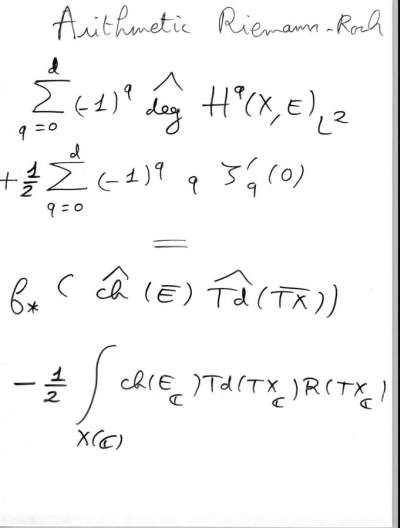 Arithmetic Riemann-Roch
d
∑ (-1)^q \widehat{deg} H^q(X,E)_{L^2}
q=0
d
+ 1/2 ∑ (-1)^q q ζ'_q(0)
q=0
=
f_* ( \widehat{ch} (E) \widehat{Td} (\overline{TX}))
- 1/2 ∫ ch(E_ℂ)Td(TX_ℂ)R(TX_ℂ)
X(ℂ)